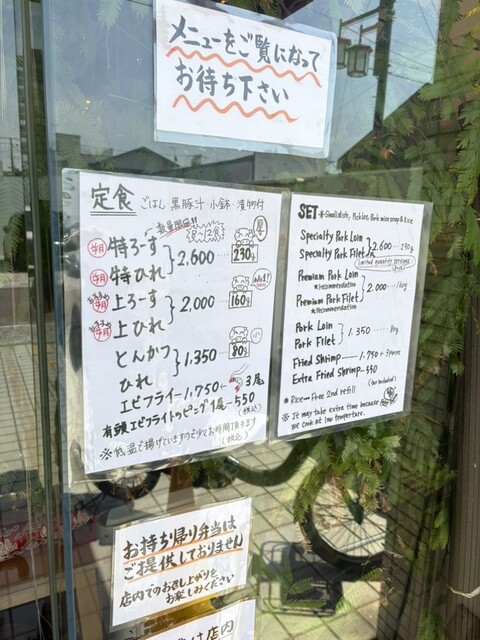 メニューをご覧になって
お待ち下さい
定食 ごはん 黒豚汁 小鉢 漬物付
数量限定!!
特ろーす
特ひれ
2,600
230g
上ろーす
上ひれ
2,000
No.1!
160g
とんかつ
ひれ
1,350
80g
エビフライー1,750← 3尾
有頭エビフライトッピング1尾ー550
(税込)
※低温で揚げていますので少々お時間頂きます
(税込)
SET ※Small dish, Pickles, Pork miso soup & Rice
Specialty Pork Loin
Specialty Pork Filet
2,600…230g
Limited quantity servings
Premium Pork Loin
*recommendation
Premium Pork Filet
*recommendation
2,000…160g
Pork Loin
Pork Filet
1,350
Fried Shrimp—1,750←3pieces
Extra Fried Shrimp—550
(tax included)
*Rice—Free 2nd refill
※It may take extra time because
we cook at low temperture.
お持ち帰り弁当は
ご提供しておりません
店内でのお召し上がりを
お楽しみください
は店内